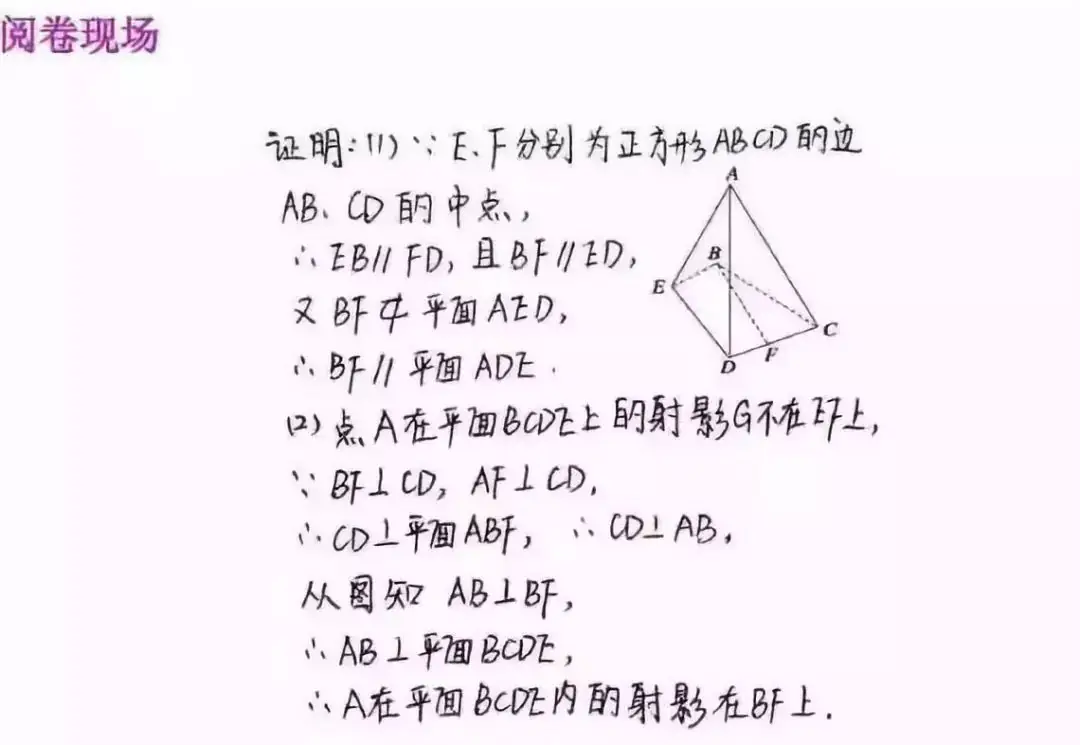 阅卷现场
证明:(1)∵E、F分别为正方形ABCD的边
AB、CD的中点,
∴EB∥FD,且BF∥ED,
又BF⊄平面AED,
∴BF∥平面ADE.
(2)点A在平面BCDE上的射影G不在EF上,
∵BF⊥CD,AF⊥CD,
∴CD⊥平面ABF,∴CD⊥AB,
从图知 AB⊥BF,
∴AB⊥平面BCDE,
∴A在平面BCDE内的射影在BF上.
A
B
E
C
F
D